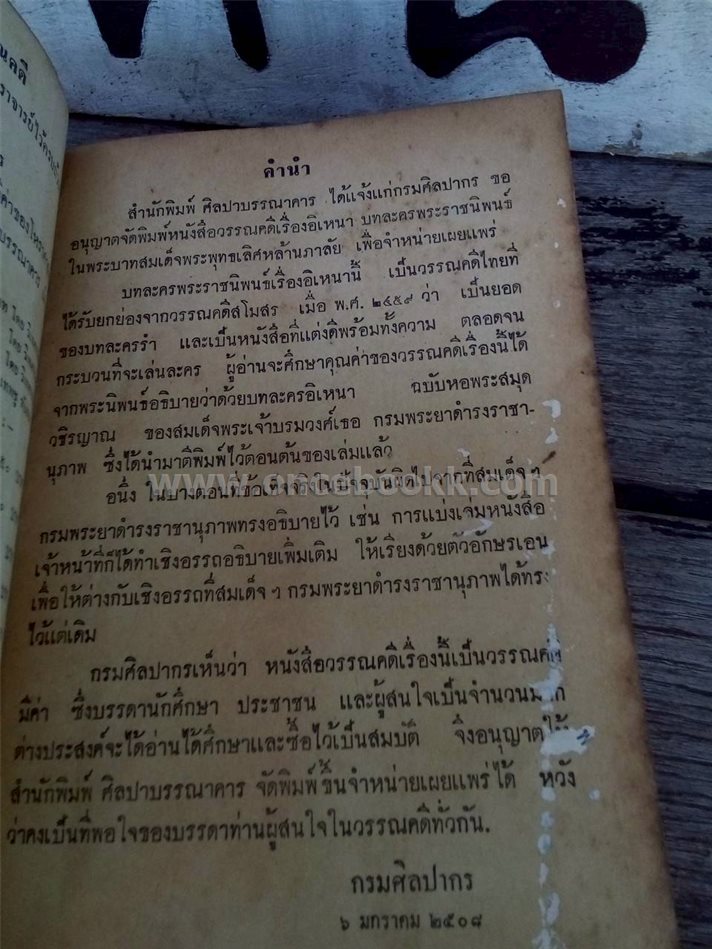 คำนำ
สำนักพิมพ์ ศิลปาบรรณาคาร ได้แจ้งแก่กรมศิลปากร ขอ
อนุญาตจัดพิมพ์หนังสือวรรณคดีเรื่องอิเหนา บทละครพระราชนิพนธ์
ในพระบาทสมเด็จพระพุทธเลิศหล้านภาลัย เพื่อจำหน่ายเผยแพร่
บทละครพระราชนิพนธ์เรื่องอิเหนานี้ เป็นวรรณคดีไทยที่
ได้รับยกย่องจากวรรณคดีสโมสร เมื่อ พ.ศ. ๒๔๕๙ ว่า เป็นยอด
ของบทละครรำ และเป็นหนังสือที่แต่งดีพร้อมทั้งความ ตลอดจน
กระบวนที่จะเล่นละคร ผู้อ่านจะศึกษาคุณค่าของวรรณคดีเรื่องนี้ได้
จากพระนิพนธ์อธิบายว่าด้วยบทละครอิเหนา ฉบับหอพระสมุด
วชิรญาณ ของสมเด็จพระเจ้าบรมวงศ์เธอ กรมพระยาดำรงราชา-
นุภาพ ซึ่งได้นำมาตีพิมพ์ไว้ตอนต้นของเล่มแล้ว
อนึ่ง ในบางตอนที่ข้อเท็จจริงในปัจจุบันผิดไปจากที่สมเด็จ ฯ
กรมพระยาดำรงราชานุภาพทรงอธิบายไว้ เช่น การแบ่งเล่มหนังสือ
เจ้าหน้าที่ก็ได้ทำเชิงอรรถอธิบายเพิ่มเติม ให้เรียงด้วยตัวอักษรเอน
เพื่อให้ต่างกับเชิงอรรถที่สมเด็จ ฯ กรมพระยาดำรงราชานุภาพได้ทรง
ไว้แต่เดิม
กรมศิลปากรเห็นว่า หนังสือวรรณคดีเรื่องนี้เป็นวรรณคดี
มีค่า ซึ่งบรรดานักศึกษา ประชาชน และผู้สนใจเป็นจำนวนมาก
ต่างประสงค์จะได้อ่านได้ศึกษาและซื้อไว้เป็นสมบัติ จึงอนุญาตให้
สำนักพิมพ์ ศิลปาบรรณาคาร จัดพิมพ์ขึ้นจำหน่ายเผยแพร่ได้ หวัง
ว่าคงเป็นที่พอใจของบรรดาท่านผู้สนใจในวรรณคดีทั่วกัน.
กรมศิลปากร
๖ มกราคม ๒๕๐๘